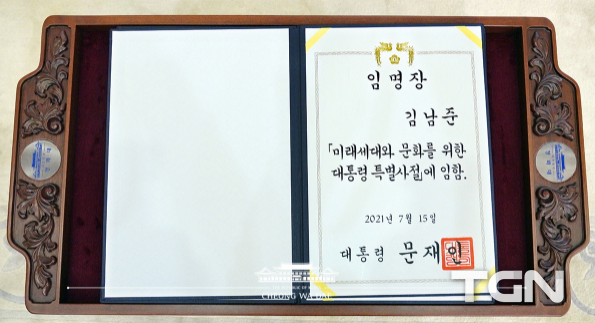 임명장
김남준
「미래세대와 문화를 위한
대통령 특별사절」에 임함.
2021년 7월 15일
대통령 문재인
CHEONG WA DAE
TGN